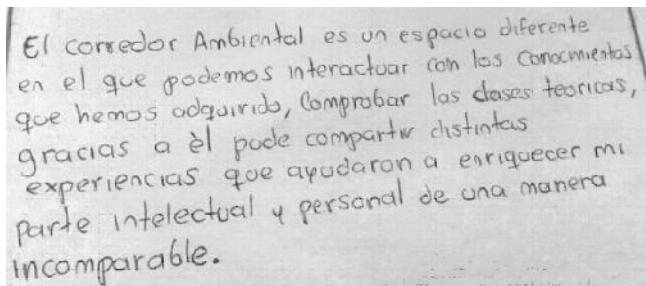 El corredor Ambiental es un espacio diferente
en el que podemos interactuar con los conocimientos
que hemos adquirido, Comprobar las clases teoricas,
gracias a èl pude compartir distintas
experiencias que ayudaron a enriquecer mi
parte intelectual y personal de una manera
incomparable.